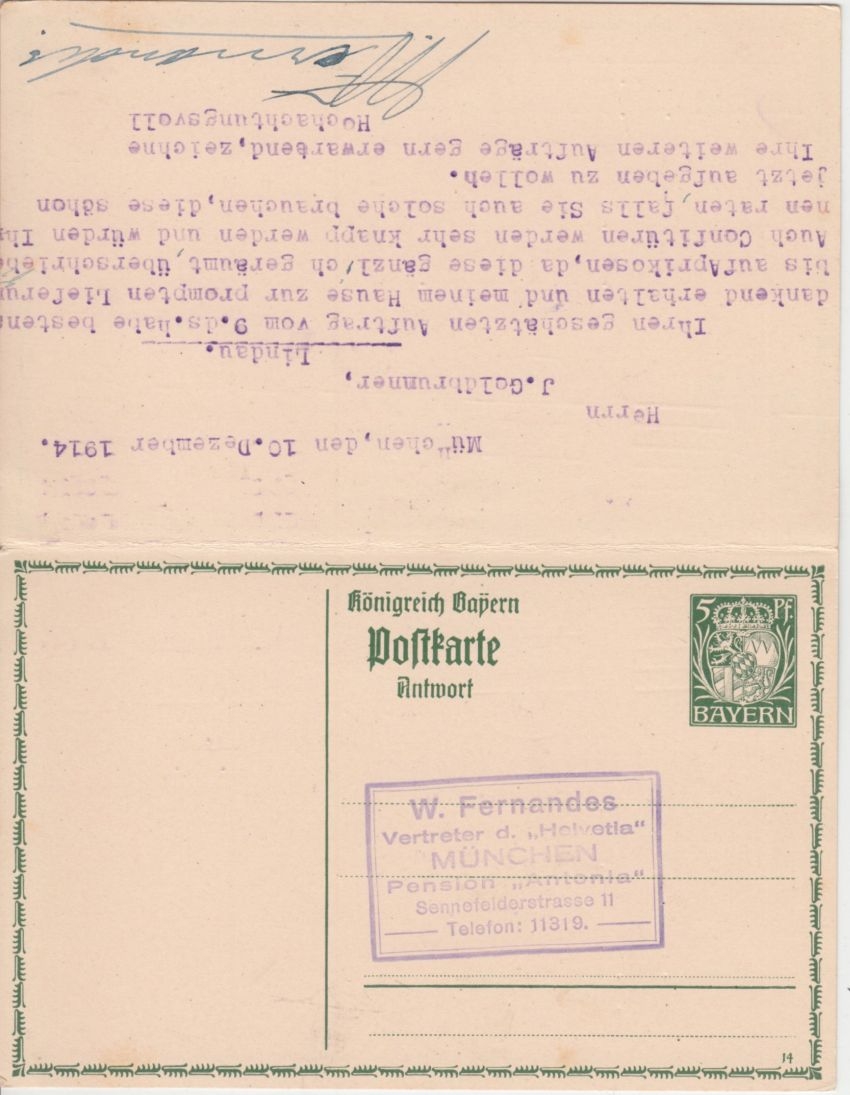 München, den 10.Dezember 1914.
Herrn
J.Goldbrunner,
Lindau.
Ihren geschätzten Auftrag vom 9.ds.habe bestens
dankend erhalten und meinem Hause zur prompten Lieferun
bis aufAprikosen,da diese gänzlich geräumt,überschriebe
Auch Confitüren werden sehr knapp werden und würden Ih
nen raten,falls Sie auch solche brauchen,diese schön
jetzt aufgeben zu wollen.
Ihre weiteren Aufträge gern erwartend,zeichne
Hochachtungsvoll
W. Fernandes
Königreich Bayern
Postkarte
Antwort
5 Pf.
BAYERN
W. Fernandes
Vertreter d. „Helvetia“
MÜNCHEN
Pension „Antonia“
Sennefelderstrasse 11
Telefon: 11319.
14